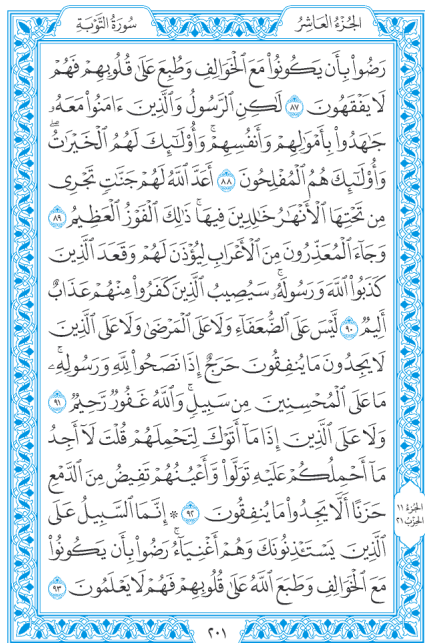 سُورَةُ التَّوْبَةِ
الجُزْءُ العَاشِرُ
رَضُوا۟ بِأَن يَكُونُوا۟ مَعَ ٱلْخَوَالِفِ وَطُبِعَ عَلَىٰ قُلُوبِهِمْ فَهُمْ
لَا يَفْقَهُونَ ٨٧ لَٰكِنِ ٱلرَّسُولُ وَٱلَّذِينَ ءَامَنُوا۟ مَعَهُۥ
جَٰهَدُوا۟ بِأَمْوَٰلِهِمْ وَأَنفُسِهِمْۚ وَأُو۟لَٰٓئِكَ لَهُمُ ٱلْخَيْرَٰتُۖ
وَأُو۟لَٰٓئِكَ هُمُ ٱلْمُفْلِحُونَ ٨٨ أَعَدَّ ٱللَّهُ لَهُمْ جَنَّٰتٍ تَجْرِى
مِن تَحْتِهَا ٱلْأَنْهَٰرُ خَٰلِدِينَ فِيهَاۚ ذَٰلِكَ ٱلْفَوْزُ ٱلْعَظِيمُ ٨٩
وَجَآءَ ٱلْمُعَذِّرُونَ مِنَ ٱلْأَعْرَابِ لِيُؤْذَنَ لَهُمْ وَقَعَدَ ٱلَّذِينَ
كَذَبُوا۟ ٱللَّهَ وَرَسُولَهُۥۚ سَيُصِيبُ ٱلَّذِينَ كَفَرُوا۟ مِنْهُمْ عَذَابٌ
أَلِيمٌ ٩٠ لَّيْسَ عَلَى ٱلضُّعَفَآءِ وَلَا عَلَى ٱلْمَرْضَىٰ وَلَا عَلَى ٱلَّذِينَ
لَا يَجِدُونَ مَا يُنفِقُونَ حَرَجٌ إِذَا نَصَحُوا۟ لِلَّهِ وَرَسُولِهِۦۚ
مَا عَلَى ٱلْمُحْسِنِينَ مِن سَبِيلٍۚ وَٱللَّهُ غَفُورٌ رَّحِيمٌ ٩١
وَلَا عَلَى ٱلَّذِينَ إِذَا مَآ أَتَوْكَ لِتَحْمِلَهُمْ قُلْتَ لَآ أَجِدُ
مَآ أَحْمِلُكُمْ عَلَيْهِ تَوَلَّوا۟ وَّأَعْيُنُهُمْ تَفِيضُ مِنَ ٱلدَّمْعِ
حَزَنًا أَلَّا يَجِدُوا۟ مَا يُنفِقُونَ ٩٢ ۞ إِنَّمَا ٱلسَّبِيلُ عَلَى
ٱلَّذِينَ يَسْتَـْٔذِنُونَكَ وَهُمْ أَغْنِيَآءُۚ رَضُوا۟ بِأَن يَكُونُوا۟
مَعَ ٱلْخَوَالِفِ وَطَبَعَ ٱللَّهُ عَلَىٰ قُلُوبِهِمْ فَهُمْ لَا يَعْلَمُونَ ٩٣
الجُزْءُ ١١
الحِزْبُ ٢١
٢٠١